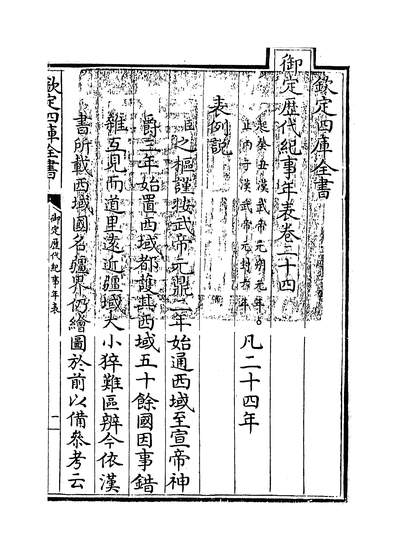 欽定四庫全書
御定歷代紀事年表卷三十四
起癸丑漢武帝元朔元年
止丙子漢武帝元封六年
凡二十四年
表例說
臣之樞謹按武帝元鼎二年始通西域至宣帝神
爵三年始置西域都護其西域五十餘國因事錯
雜互見而道里遠近疆域大小猝難區辨今依漢
書所載西域國名疆界仍繪圖於前以備參考云
欽定四庫全書
御定歷代紀事年表
一